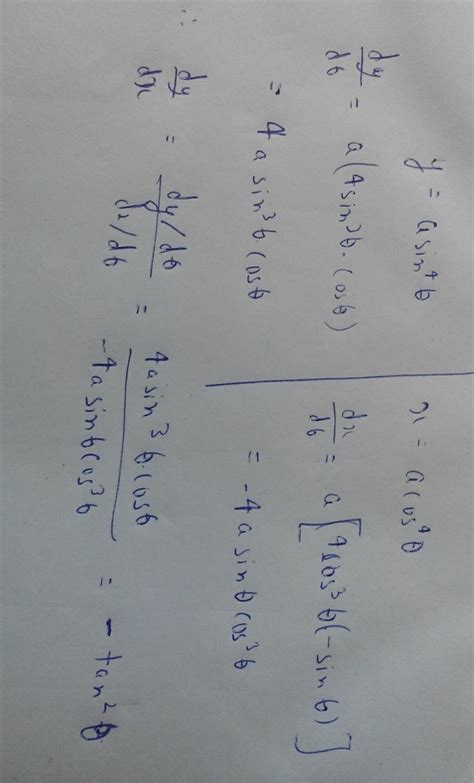 y = a sin⁴θ
dy/dθ = a(4sin³θ · cosθ)
= 4a sin³θ · cosθ
x = a cos⁴θ
dx/dθ = a[4cos³θ(-sinθ)]
= -4a sinθ cos³θ
∴ dy/dx = (dy/dθ)/(dx/dθ) = (4a sin³θ · cosθ)/(-4a sinθ cos³θ) = -tan²θ.